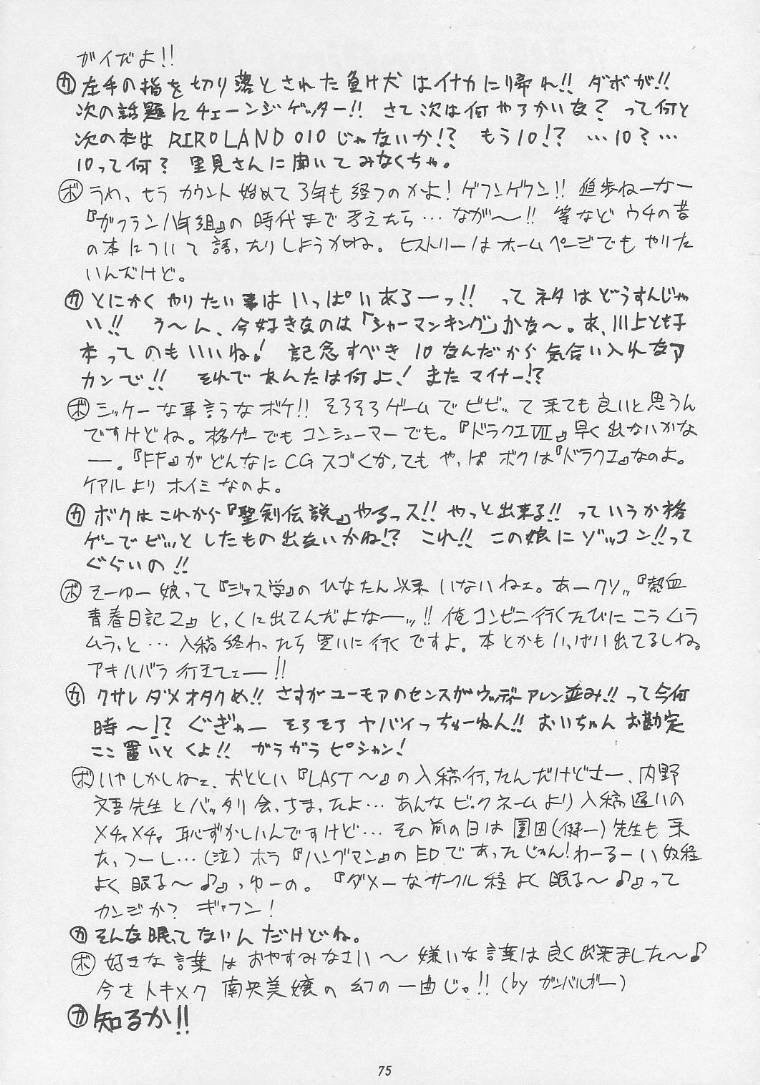 ガイだよ!!
㋕左手の指を切り落とされた負け犬はイナカに帰れ!! ダボが!!
次の話題にチェーンジゲッター!! さて次は何やろかいな? って何と
次の本は RIROLAND 010 じゃないか!? もう10!? …10? …
10って何? 里見さんに聞いてみなくちゃ。
㋭うわ、もうカウント始めて3年も経つのかよ! ゲフンゲフン!! 進歩ねーなー
『ガフラン八年組』の時代まで考えたら…なが〜!! 等など ウチの昔
の本について語ったりしようかね。ヒストリーはホームページでもやりた
いんだけど。
㋕とにかくやりたい事はいっぱいあるーっ!! ってネタはどうすんじゃ
い!! う〜ん、今好きなのは「シャーマンキング」かな〜。あ、川上とも子
本ってのもいいね! 記念すべき10なんだから気合い入れなア
カンで!! それであんたは何よ! またマイナー!?
㋭シッケーな事言うなボケ!! そろそろゲームでビビッて来ても良いと思うん
ですけどね。格ゲーでもコンシューマーでも。『ドラクエⅦ』早く出ないかな
ー。『FF』がどんなにCGスゴくなってもやっぱボクは『ドラクエ』なのよ。
ケアルよりホイミなのよ。
㋕ボクはこれから『聖剣伝説』やるっス!! やっと出来る!! っていうか格
ゲーでビッとしたもの出ないかね!? これ!! この娘にゾッコン!!って
ぐらいの!!
㋭そーゆー娘って『ジャス学』のひなたん以来いないねェ。あークソッ『熱血
青春日記2』とっくに出てんだよなーッ!! 俺コンビニ行くたびにこうムラ
ムラっと…入稿終わったら買いに行くですよ。本とかもいっぱい出てるしね。
アキハバラ行きてェー!!
㋕クサレダメオタクめ!! さすがユーモアのセンスがウッディアレン並み!! って今何
時〜!? ぐぎゃー そろそろヤバイっちゅーねん!! おいちゃん お勘定
ここ置いとくよ!! ガラガラピシャン!
㋭いやしかしねェ、おととい『LAST〜』の入稿行ったんだけどさー、内野
文吾先生とバッタリ会っちまったよ…あんなビックネームより入稿遅いの
メチャメチャ恥ずかしいんですけど…その前の日は園田(健一)先生も来
たっつーし…(泣) ホラ『ハングマン』のEDであったじゃん! わーるーい奴程
よく眠る〜♪っゆーの。『ダメーなサークル程よく眠る〜♪』って
カンジか? ギャフン!
㋕そんな眠ってないんだけどね。
㋭好きな言葉はおやすみなさい〜 嫌いな言葉は良く出来ました〜♪
今さトキメク南央美嬢の幻の一曲じゃ!! (by ガンバルガー)
㋕知るか!!
75